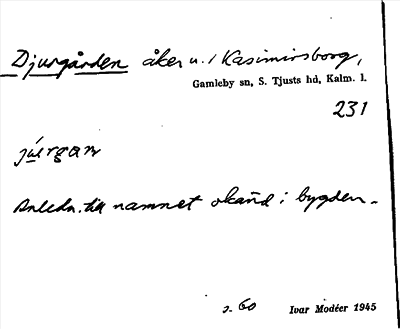 Djurgården åker u. / Kasimirsborg,
Gamleby sn, S. Tjusts hd, Kalm. l.
231
Anledn. till namnet okänd i bygden.
s. 60 Ivar Modéer 1945